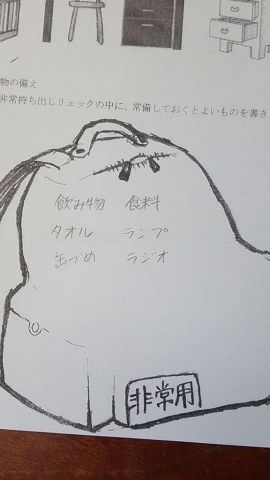 物の備え
非常持ち出しリュックの中に、常備しておくとよいものを書き
飲み物 食料
タオル ランプ
缶づめ ラジオ
非常用